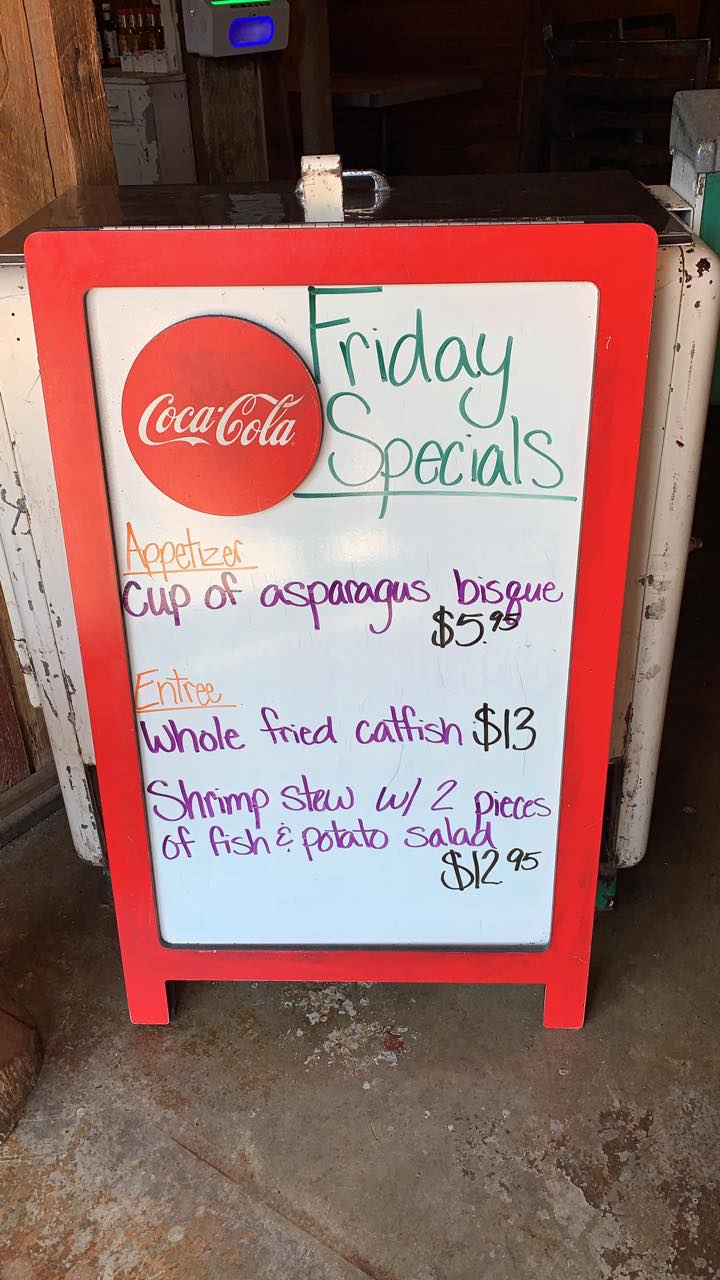 Coca-Cola
Friday
Specials
Appetizer
cup of asparagus bisque
$5.95
Entree
Whole fried catfish $13
Shrimp stew w/ 2 pieces
of fish & potato salad
$12.95